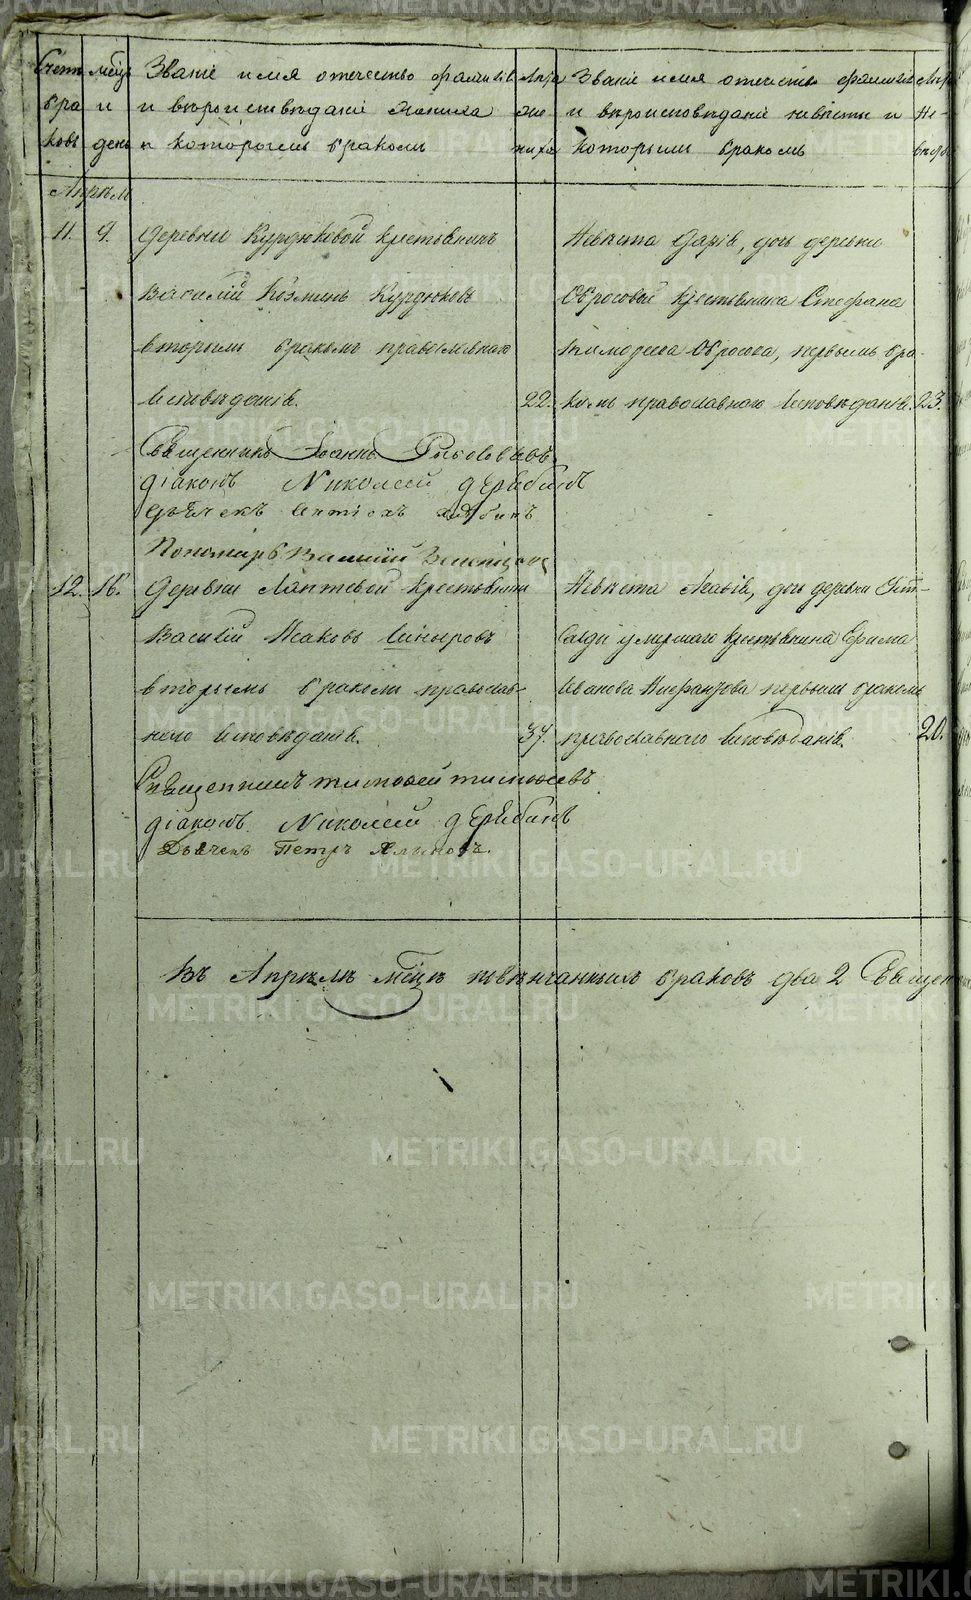 Счетъ бра ковъ
мѣсц и день
Званіе имя отечество фамилія
и вѣроисповѣданіе жениха
и которымъ бракомъ
Лѣта же ниха
Званіе имя отечество фамилія
и вѣроисповѣданіе невѣсты и
которымъ бракомъ
Лѣта не- вѣсты
Апрѣль
11. 9. Деревни Курдюковой крестьянинъ
Василій Козминъ Курдюковъ
вторымъ бракомъ православнаго
исповѣданія. 22.
Невѣста Дарія, дочь деревни
Обросовой крестьянина Стефана
Тимофеева Обросова, первымъ бра-
комъ православнаго исповѣданія. 23.
Священникъ Іоаннъ
Діаконъ Николай Дерябинъ
Дьячекъ
Пономарь Василій
12. 16. Деревни Лаптевой крестьянинъ
Василій Исаковъ
вторымъ бракомъ православ-
наго исповѣданія. 37.
Невѣста Агафія, дочь деревни
умершаго крестьянина
Иванова первымъ бракомъ
православнаго исповѣданія. 20.
Священникъ Тимофей
Діаконъ Николай Дерябинъ
Дьячекъ Петръ Хлыновъ.
Въ Апрѣлѣ мѣсцѣ повѣнчанныхъ браковъ два 2
METRIKI.GASO-URAL.RU